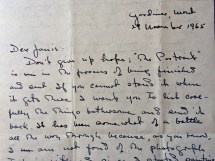 Gardiner, Mont
November 1965
Dear Janis:
Don't give up hope; "The Portrait"
is in the process of being finished
and sent. If you cannot stand it when
it gets there I want you to hand care-
fully the thing between and send it
back. It has been somewhat of a battle
all the way through because, as you know,
I am not fond of the photograph